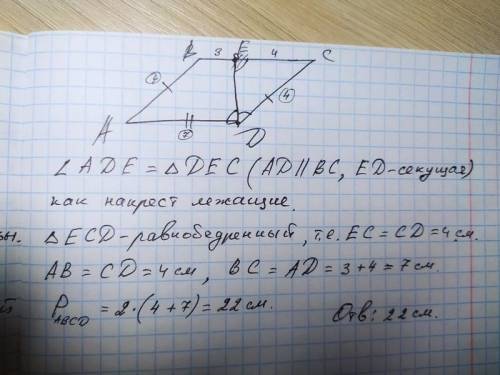 B 3 E 4 C
4 4
A 7 D
∠ADE = △DEC (AD∥BC, ED-секущая)
как накрест лежащие.
△ECD-равнобедренный, т.е. EC = CD = 4 см.
AB = CD = 4 см, BC = AD = 3 + 4 = 7 см.
P ABCD = 2·(4+7) = 22 см. Отв: 22 см.